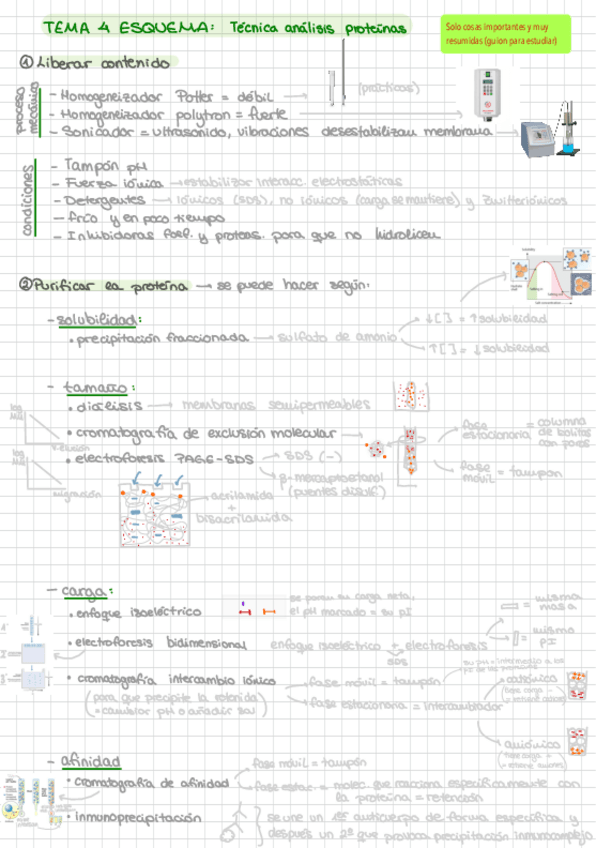 TEMA 4 ESQUEMA: Técnica análisis proteínas
Solo cosas importantes y muy
resumidas (guion para estudiar)
① Liberar contenido
proceso mecánico
- Homogeneizador Potter = débil
(prácticas)
- Homogeneizador polytron = fuerte
- Sonicador = ultrasonido, vibraciones desestabilizan membrana
condiciones
- Tampón pH
- Fuerza iónica → estabilizar interacc. electrostáticas
- Detergentes → iónicos (SDS), no iónicos (carga se mantiene) y zwitteriónicos
- frío y en poco tiempo
- Inhibidoras fosf. y proteas. para que no hidrolicen
② Purificar la proteína → se puede hacer según:
- solubilidad:
• precipitación fraccionada → sulfato de amonio
↓[ ] = ↑solubilidad
↑[ ] = ↓solubilidad
- tamaño:
• diálisis → membranas semipermeables
• cromatografía de exclusión molecular
fase estacionaria = columna de bolitas con poros
fase móvil = tampón
log
elución
• electroforesis PAGE-SDS → SDS (-)
β-mercaptoetanol
(puentes disulf.)
log
migración
acrilamida
+
bisacrilamida
- carga:
• enfoque isoeléctrico
se para su carga neta,
el pH marcado = su pI
• electroforesis bidimensional
enfoque isoeléctrico + electroforesis
SDS
= misma masa
= mismo pI
• cromatografía intercambio iónico
fase móvil = tampón
su pH = intermedio a los
fase estacionaria = intercambiador
(para que precipite la retenida
= cambiar pH o añadir sal)
catiónico
(tiene carga -
= retiene cationes)
aniónico
(tiene carga +
= retiene aniones)
- afinidad
• cromatografía de afinidad
fase móvil = tampón
fase estac = molec. que reacciona específicamente con
la proteína = retención
• inmunoprecipitación
se une un 1er anticuerpo de forma específica y
después un 2º que provoca precipitación inmunocomplejo